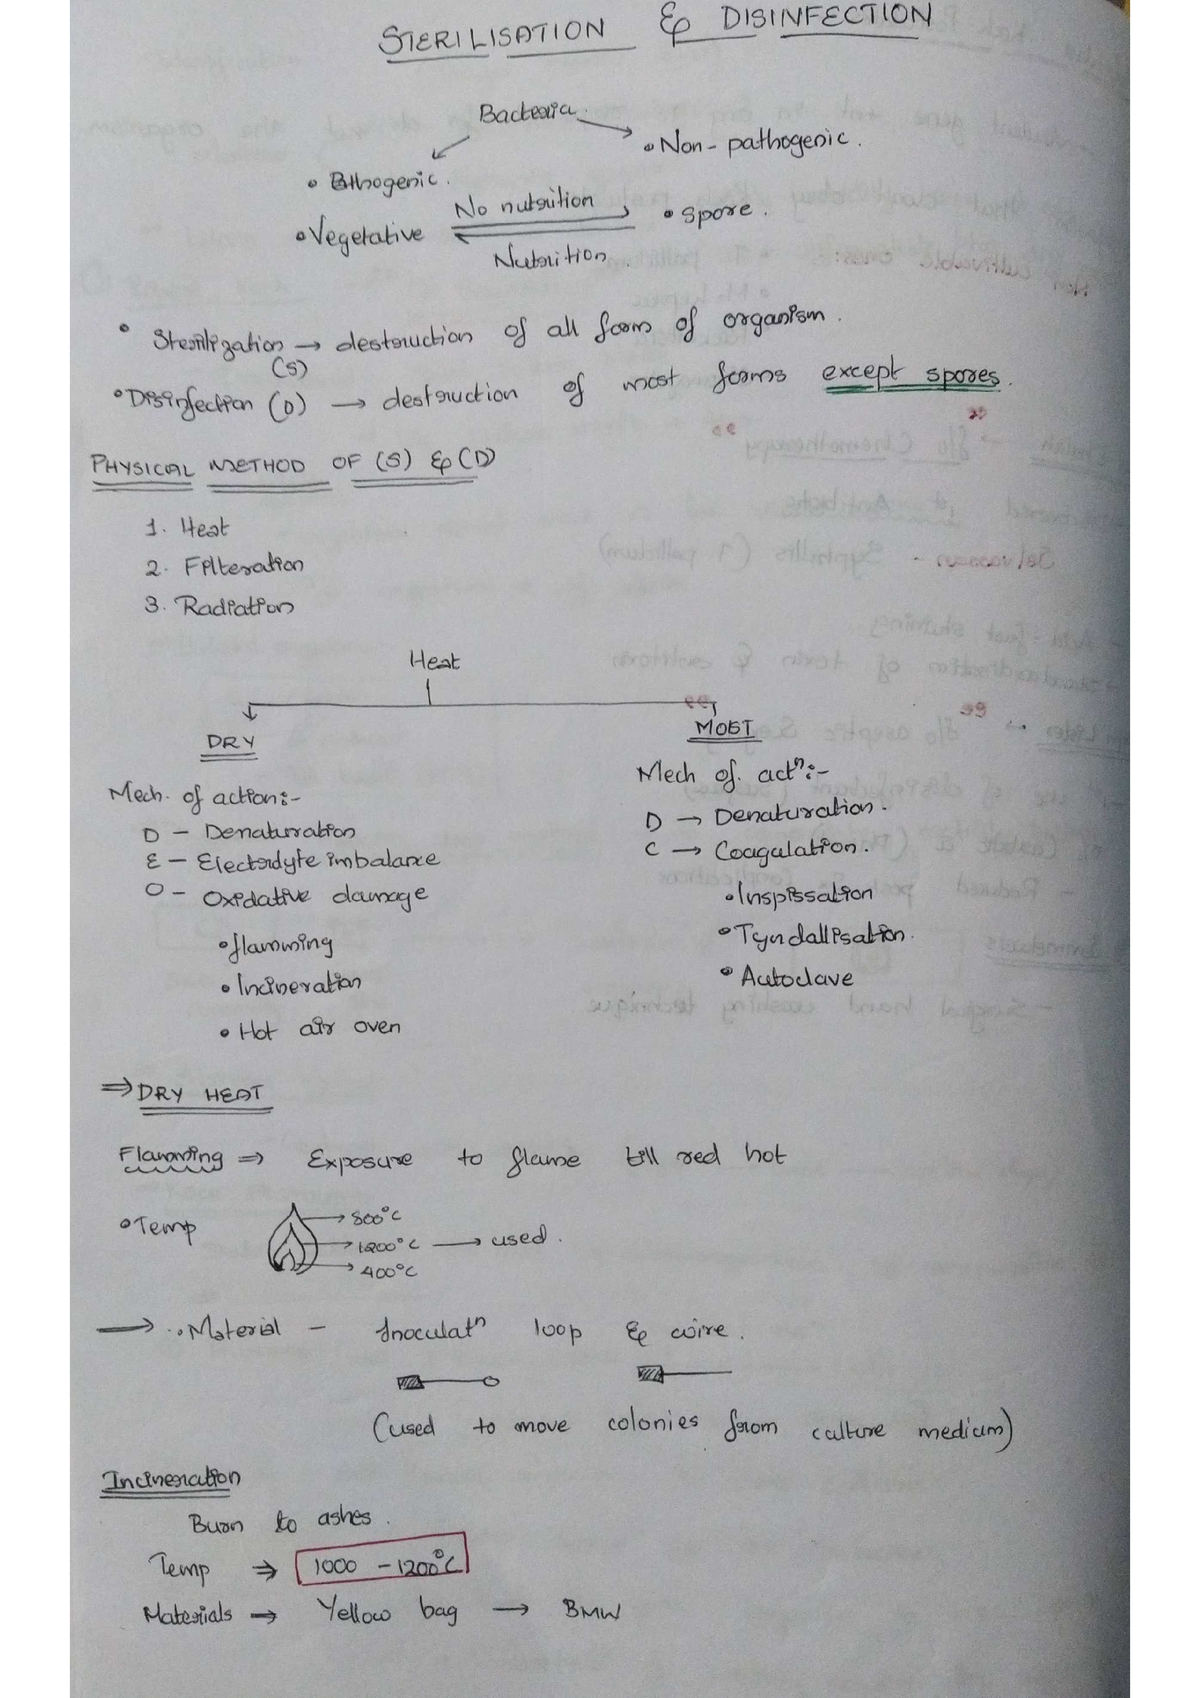 STERILISATION & DISINFECTION
Bacteria.
• Pathogenic.
• Non-pathogenic.
• Vegetative
No nutrition
Nutrition
• Spore.
• Sterilization → destruction of all form of organism.
(S)
• Disinfection (D) → destruction of most forms except spores.
PHYSICAL METHOD OF (S) & (D)
1. Heat
2. Filteration
3. Radiation
Heat
DRY
Mech. of action:-
D - Denaturation
E - Electrolyte imbalance
O - Oxidative damage
• flamming
• Incineration
• Hot air oven
MOIST
Mech of. actⁿ:-
D → Denaturation.
C → Coagulation.
• Inspissation
• Tyndallisation.
• Autoclave
⇒ DRY HEAT
Flamming ⇒ Exposure to flame till red hot
• Temp
→ 800°C
→ 1200°C → used.
→ 400°C
→ Material - Inoculatⁿ loop & wire.
(used to move colonies from culture medium)
Incineration
Burn to ashes.
Temp ⇒ 1000 - 1200°C
Materials → Yellow bag → BMW